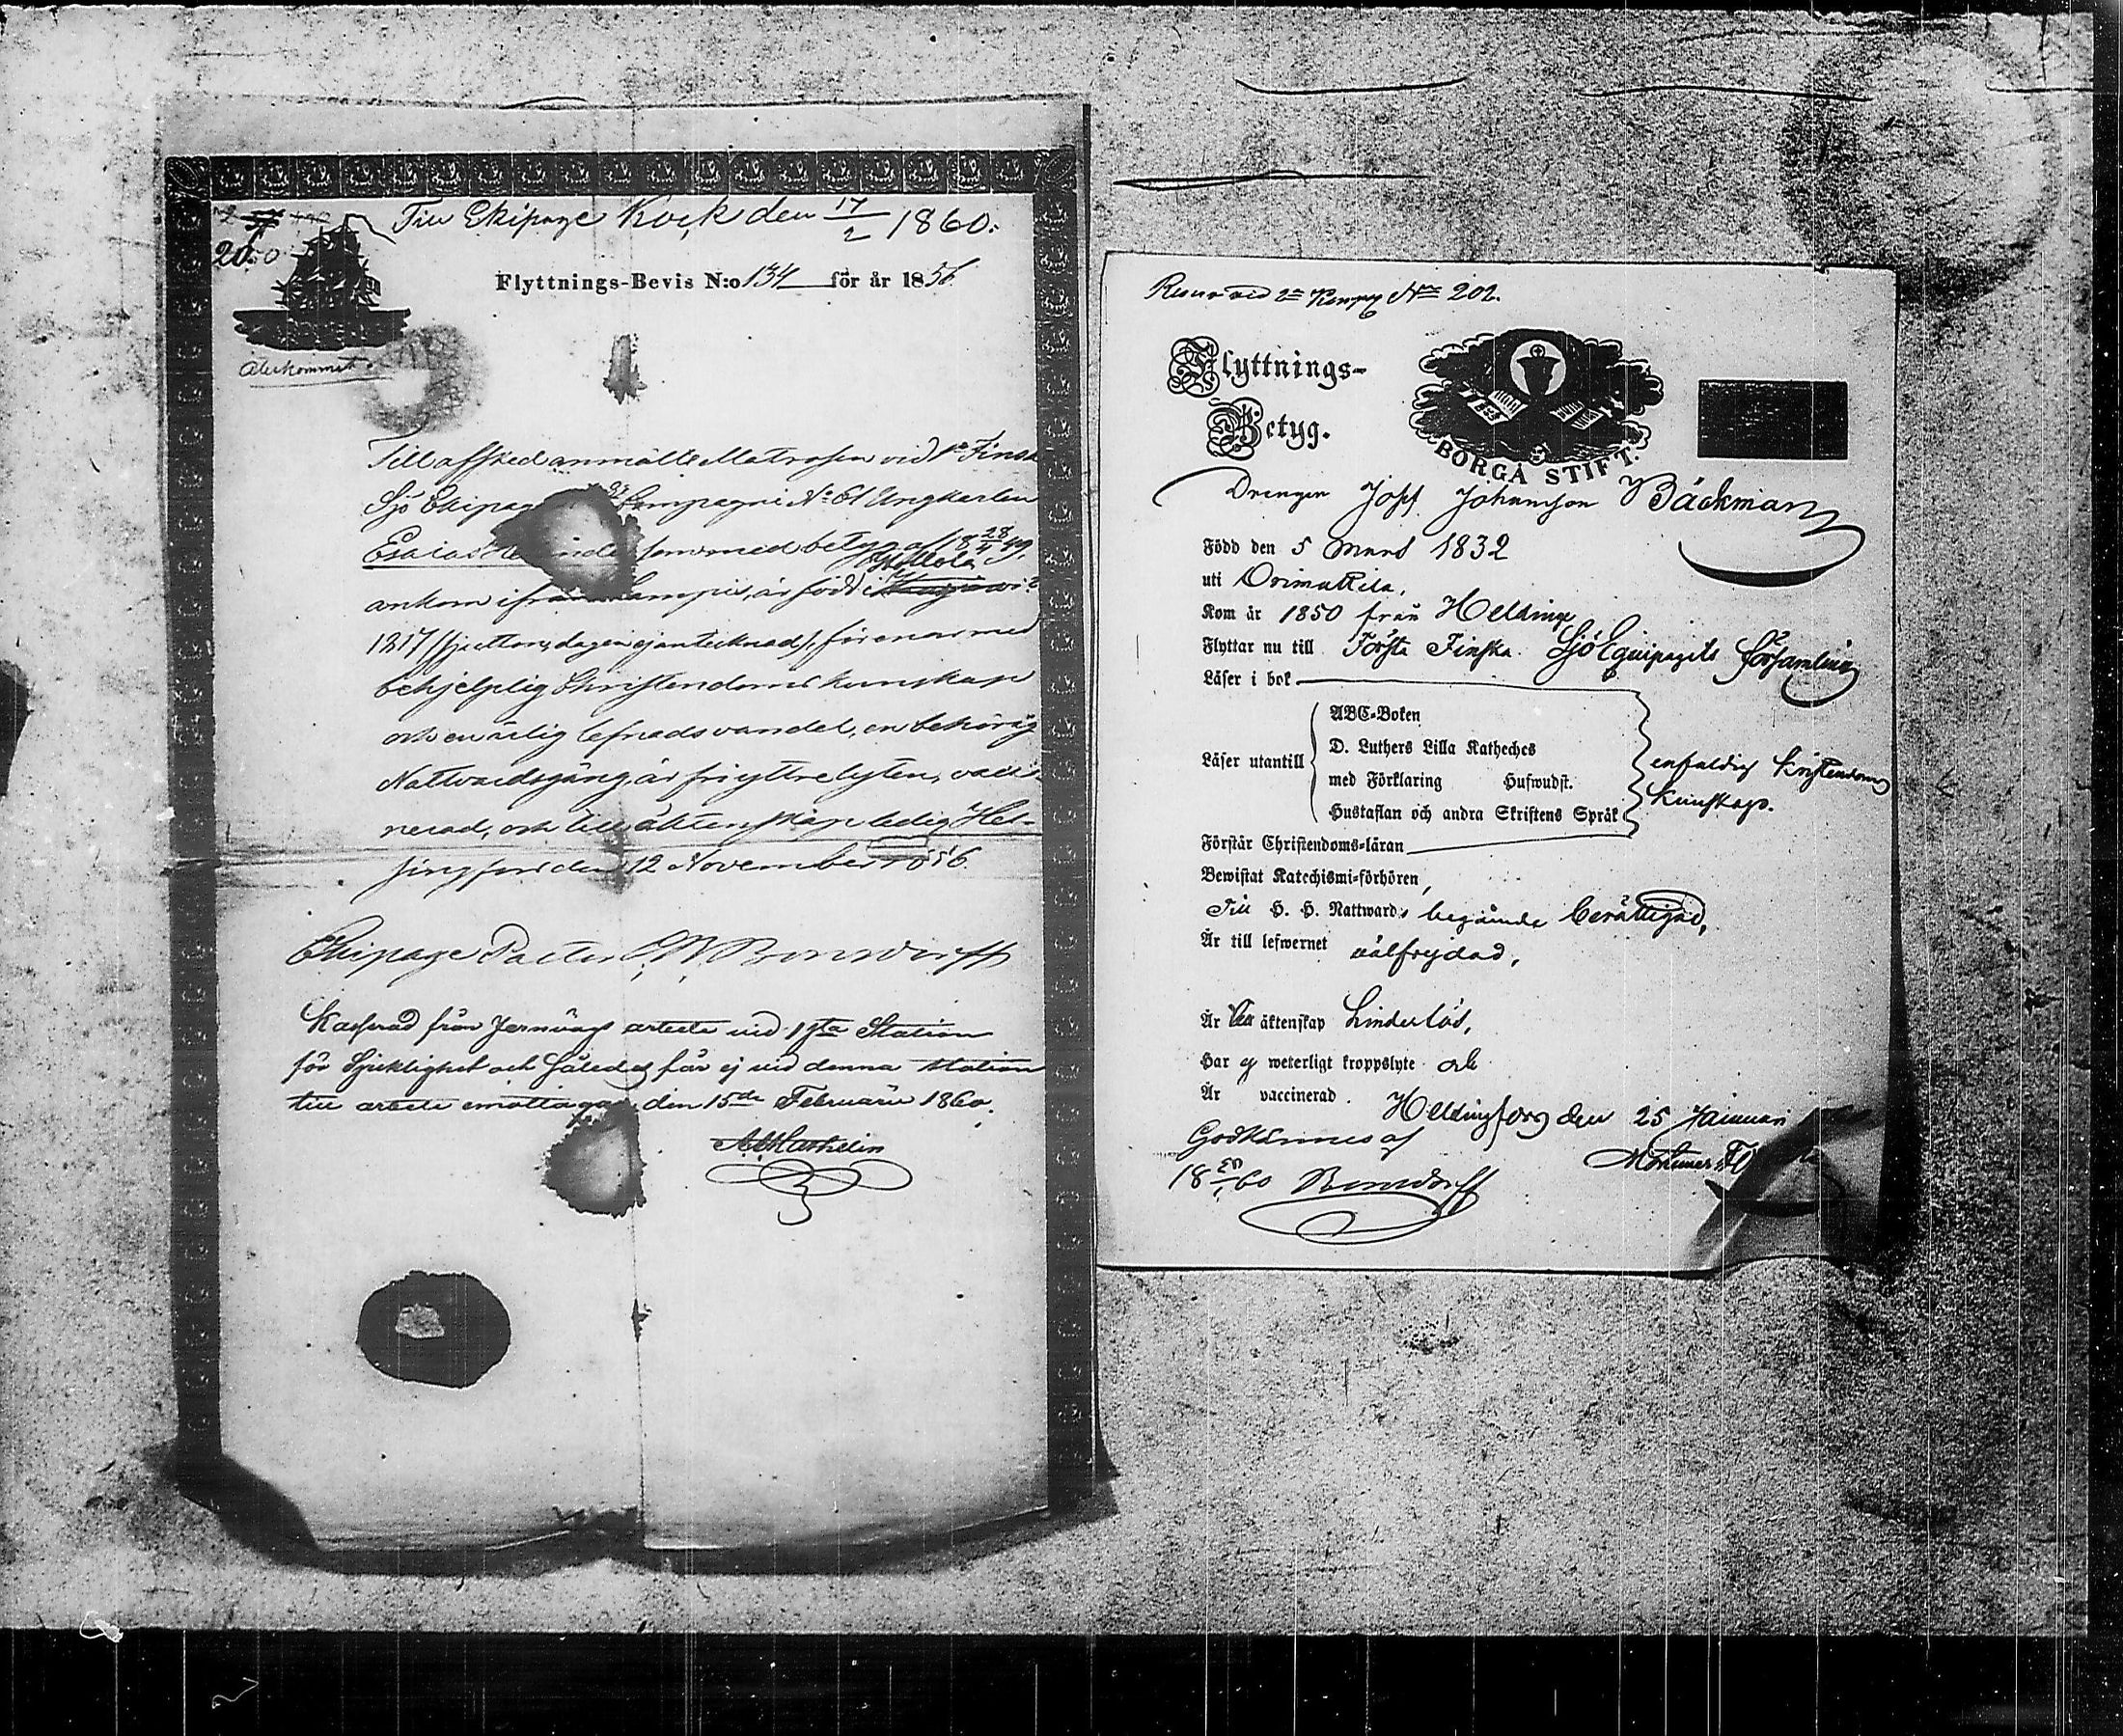 Till Ekipage Kock den 17/2 1860.
20
Flyttnings-Bevis N:o 134 för år 1856
Återkommit
Till afsked anmälte Matrosen vid 1a Finska
Sjö Ekipag Compagni N: 61 Ungkarlen
Esaias som med betyg af 18 28/4 49,
Hollola
ankom ifrån är född i
1217 dagen ej antecknad), förenar med
behjelplig Christendoms kunskap
och en ärlig lefnadsvandel, en behörig
Nattvardsgång, är fri yttre lyten, vacci-
nerad, och till äktenskap ledig Hel-
singfors den 12 November 1856.
Ekipage Pastor Bonsdorff
Kasserad från Jernvägs arbete vid 1sta Station
för Sjuklighet och Således får ej vid denna Station
till arbete emottagas den 15de Februarii 1860.
vid 2a Komp N:o 202.
Flyttnings-
Betyg.
BORGÅ STIFT.
Drengen Josef Johansson Bäckman
Född den 5 Mars 1832
uti Orimattila,
Kom år 1850 från Helsinge
Flyttar nu till Första Finska Sjö Equipagets Församling
Läser i bok
ABC-Boken
D. Luthers Lilla Katheches
Läser utantill
med Förklaring Hufwudst.
enfaldig Kristendoms
kunskap.
Hustaflan och andra Skriftens Språk
Förstår Christendoms-läran
Bewistat Katechismi-förhören,
Till H. H. Nattward begående berättigad,
Är till lefwernet välfrejdad,
Är äktenskap hinderlös,
Har ej weterligt kroppslyte och
Är vaccinerad.
Helsingfors den 25 Januari
Godkännes af
Bonsdorff